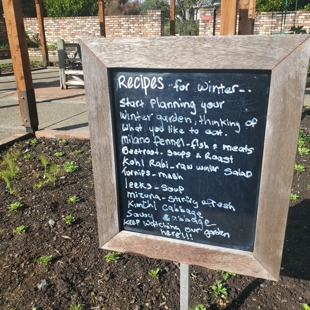 Recipes for winter...
Start planning your
winter garden, thinking of
what you like to eat.
Milano fennel-fish & meats
Beetroot-soups & Roast
Kohl Rabi-raw winter salad
Turnips-mash
leeks-soup
mizuna-stirfry & fresh
Kunshi cabbage
Savoy cabbage
Keep watching our garden
here!!!